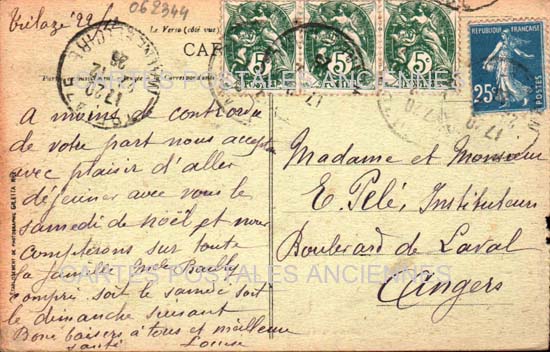 Trélazé 22/12
068344
Le Verso (côté vue)
CAR
Partie
la Correspondance
5c
5c
5c
REPUBLIQUE FRANÇAISE
25c
POSTES
17 20
CARTES POSTALES ANCIENNES
A moins de contrordre
de votre part nous acceptons
avec plaisir d'aller
déjeuner avec vous le
samedi de noël et nous
compterons sur toute
la famille Bailly
compris soit le samedi soit
le dimanche suivant
Bons baisers à tous et meilleure
santé Louise
Madame et Monsieur
E. Pelé, Instituteurs
Boulevard de Laval
Angers
CARTES POSTALES ANCIENNES